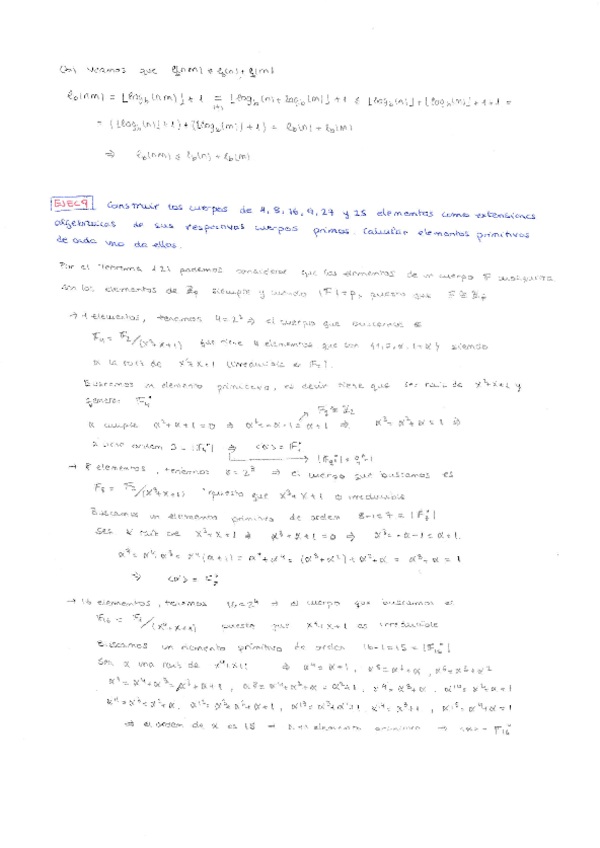 (b) Veamos que ℓb(nm) ≤ ℓb(n) + ℓb(m)
ℓb(nm) = ⌊logb(nm)⌋ + 1 = ⌊logb(n) + logb(m)⌋ + 1 ≤ ⌊logb(n)⌋ + ⌊logb(m)⌋ + 1 + 1 =
= (⌊logb(n)⌋ + 1) + (⌊logb(m)⌋ + 1) = ℓb(n) + ℓb(m)
⇒ ℓb(nm) ≤ ℓb(n) + ℓb(m)
EJEC9 Construir los cuerpos de 4, 8, 16, 9, 27 y 25 elementos como extensiones
algebraicas de sus respectivos cuerpos primos. Calcular elementos primitivos
de cada uno de ellos.
Por el Teorema 1.21 podemos considerar que los elementos de un cuerpo F
son los elementos de siempre y cuando |F| = p, puesto que
→ 4 elementos, tenemos 4 = 2² ⇒ el cuerpo que buscamos es
F4 = F2/(x²+x+1) que tiene 4 elementos que son siendo
α la raíz de x²+x+1 (irreducible en F2).
Buscamos un elemento primitivo, es decir tiene que ser raíz de x²+x+1 y
generar F4*
α cumple α²+α+1 = 0 ⇒ α² = -α-1 = α+1 ⇒ α³ = α²+α = 1
orden 3 = |F4*| ⇒ <α> = F4*
→ 8 elementos, tenemos 8 = 2³ ⇒ el cuerpo que buscamos es
F8 = F2/(x³+x+1) puesto que x³+x+1 es irreducible
Buscamos un elemento primitivo de orden 8-1 = 7 = |F8*|
Sea α raíz de x³+x+1 ⇒ α³+α+1 = 0 ⇒ α³ = -α-1 = α+1.
α⁷ = α⁴·α³ = α⁴(α+1) = α⁵+α⁴ = (α³+α²)+α²+α = α³+α = 1
⇒ <α> = F8*
→ 16 elementos, tenemos 16 = 2⁴ → el cuerpo que buscamos es
F16 = F2/(x⁴+x+1) puesto que x⁴+x+1 es irreducible
Buscamos un elemento primitivo de orden 16-1 = 15 = |F16*|
Sea α una raíz de x⁴+x+1: ⇒ α⁴ = α+1, α⁵ = α²+α, α⁶ = α³+α²
α⁷ = α⁴+α³ = α³+α+1, α⁸ = α⁴+α²+α = α²+1, α⁹ = α³+α, α¹⁰ = α²+α+1
α¹¹ = α³+α²+α, α¹² = α³+α²+α+1, α¹³ = α³+α²+1, α¹⁴ = α³+1, α¹⁵ = α⁴+α = 1
⇒ el orden de α es 15 → α es elemento primitivo → <α> = F16*